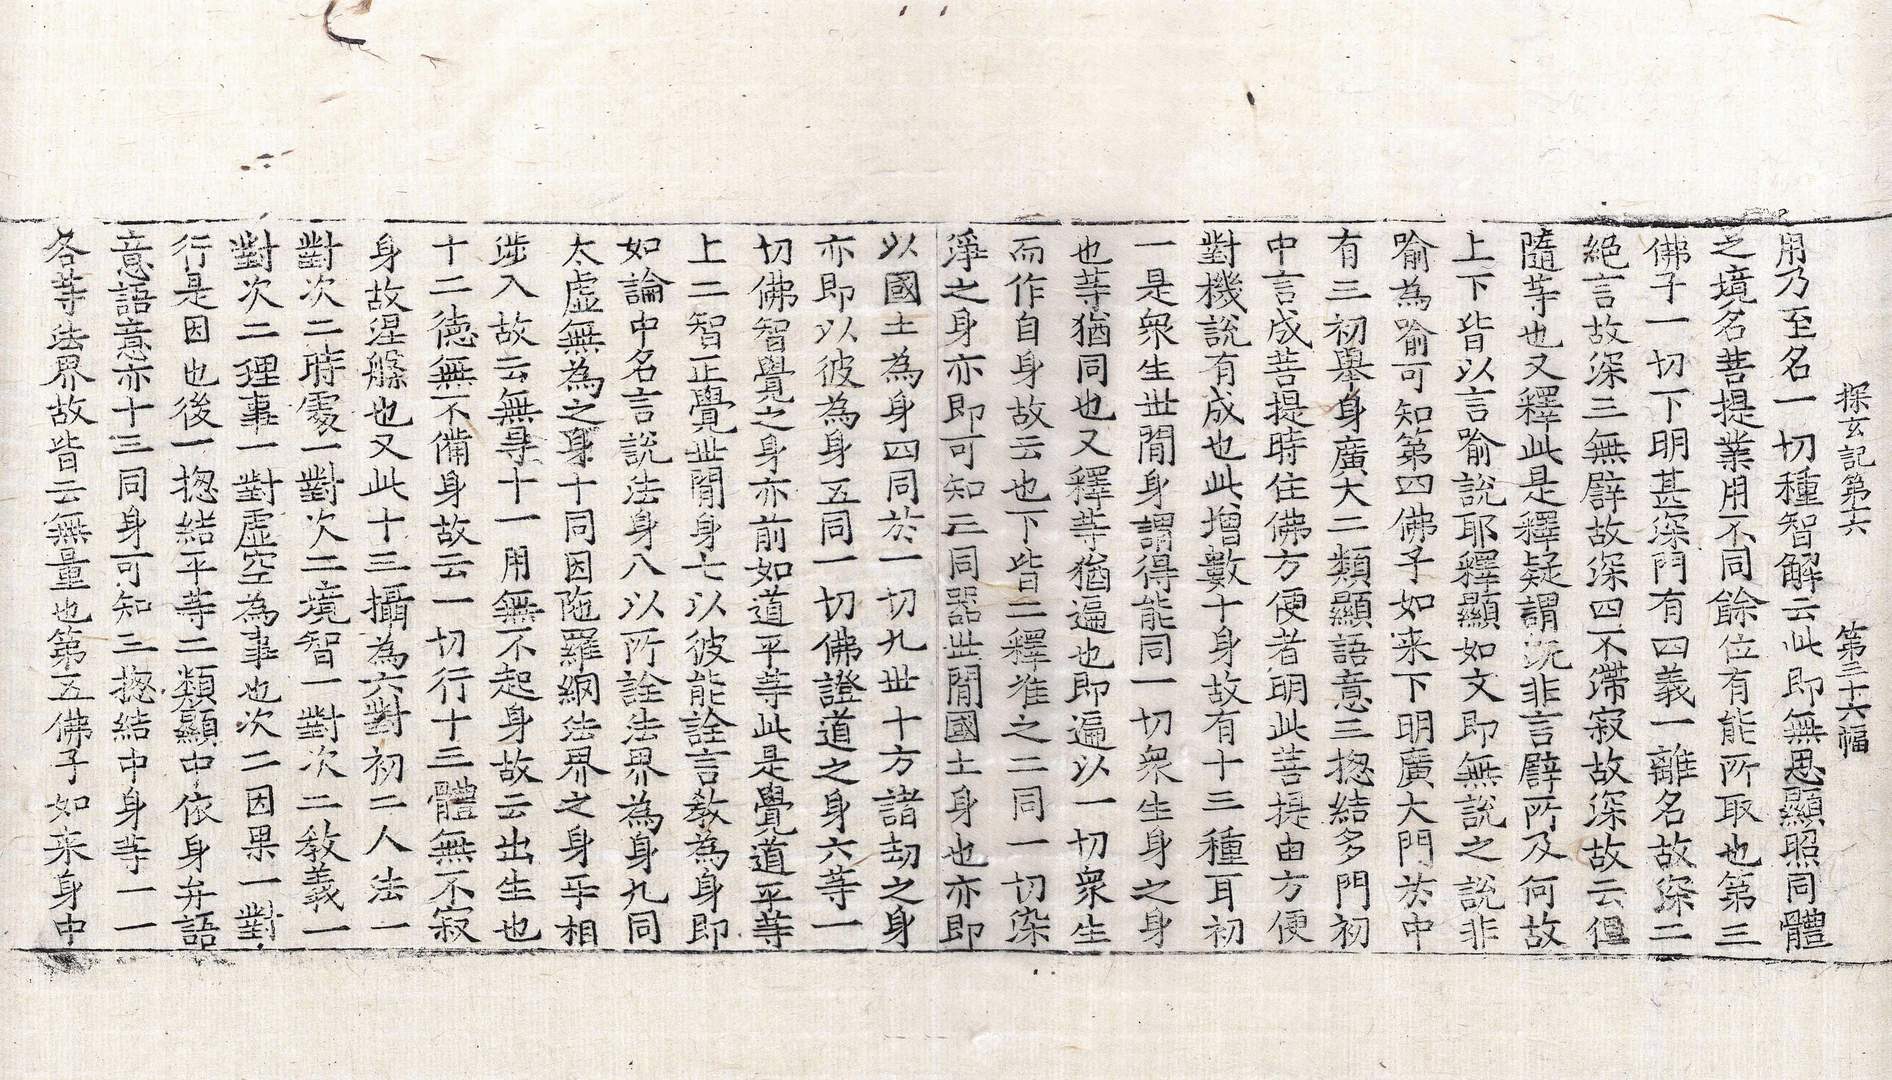 探玄記第十六　第三十六幅
用乃至名一切種智解云此即無思顯照同體
之境名菩提業用不同餘位有能所取也第三
佛子一切下明甚深門有四義一離名故深二
絕言故深三無譬故深四不滯寂故深故云但
隨等也又釋此是釋疑謂既非言譬所及何故
上下皆以言喻說耶釋顯如文即無說之說非
喻為喻可知第四佛子如来下明廣大門於中
有三初舉身廣大二類顯語意三揔結多門初
中言成菩提時住佛方便者明此菩提由方便
對機說有成也此增數十身故有十三種耳初
一是眾生世間身謂得能同一切眾生身之身
也等猶同也又釋等猶遍也即遍以一切眾生
而作自身故云也下皆二釋准之二同一切染
淨之身亦即可知三同器世間國土身也亦即
以國土為身四同於一切九世十方諸劫之身
亦即以彼為身五同一切佛證道之身六等一
切佛智覺之身亦前如道平等此是覺道平等
上二智正覺世間身七以彼能詮言教為身即
如論中名言說法身八以所詮法界為身九同
太虛無為之身十同因陁羅網法界之身乎相
涉入故云無㝵十一用無不起身故云出生也
十二德無不備身故云一切行十三體無不寂
身故涅槃也又此十三攝為六對初二人法一
對次二時處一對次二境智一對次二教義一
對次二理事一對虛空為事也次二因果一對
行是因也後一揔結平等二類顯中依身弁語
意語意亦十三同身可知三揔結中身等一一
各等法界故皆云無量也第五佛子如来身中